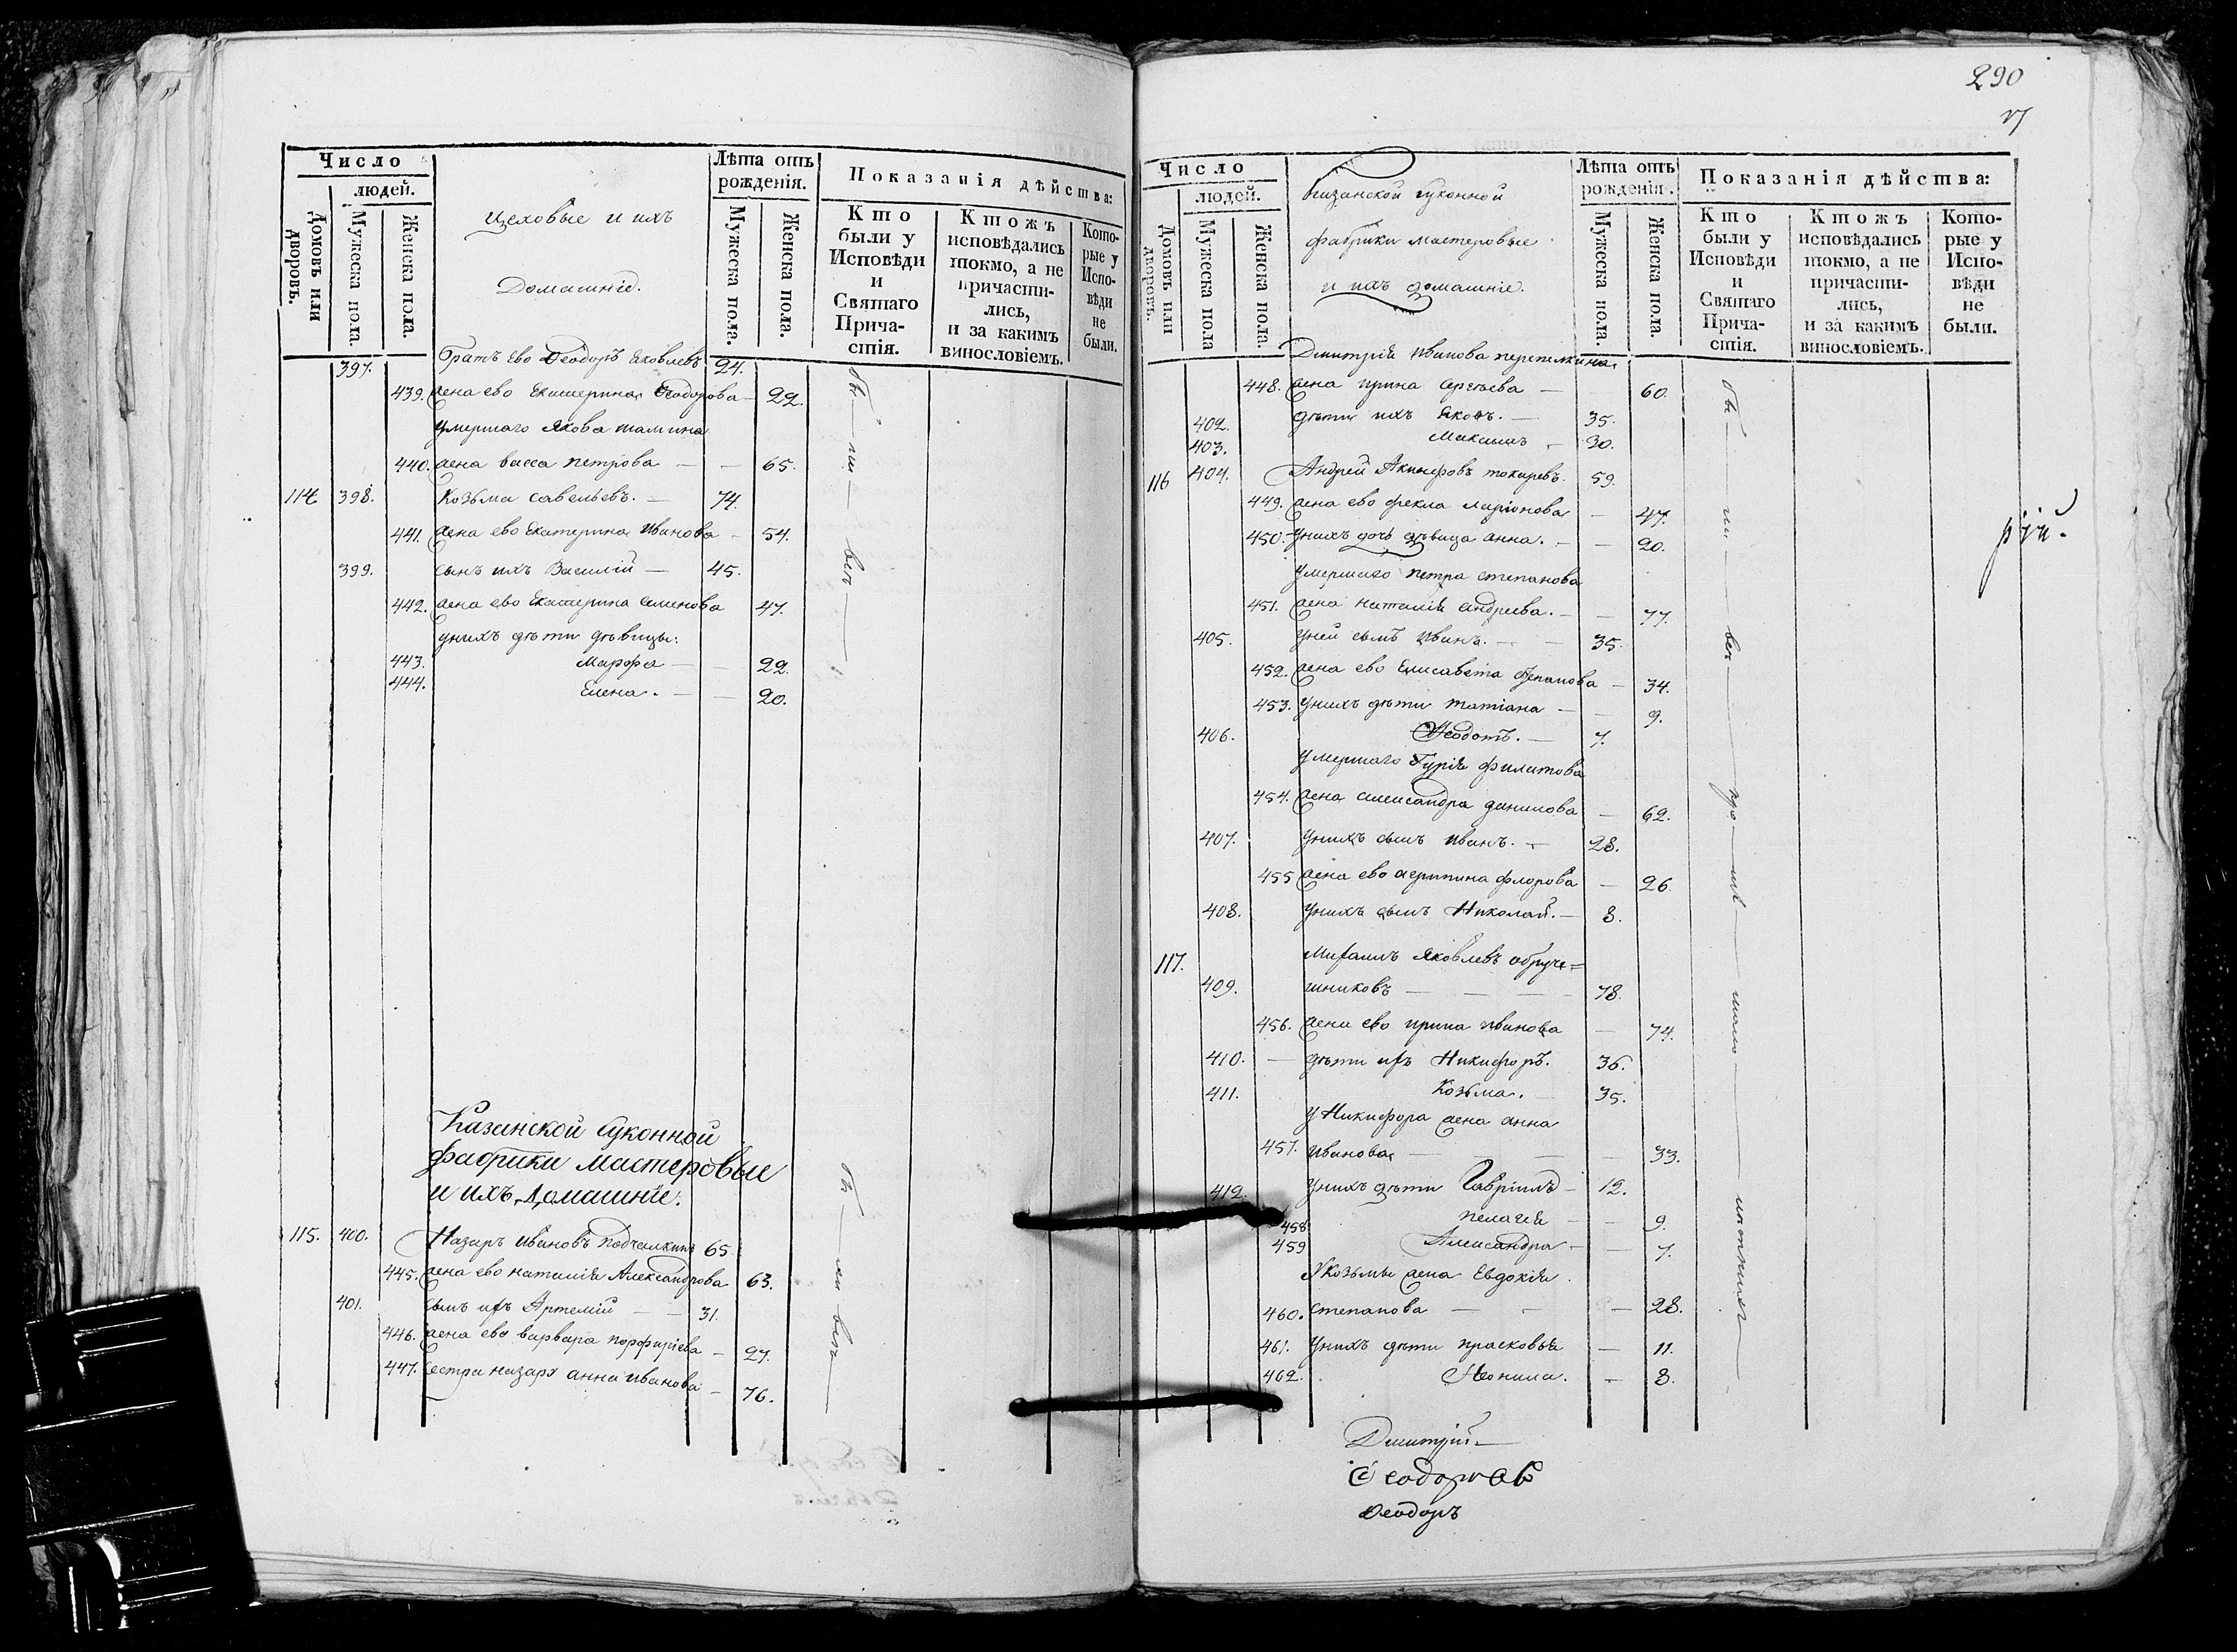 Число
людей.
Домовъ или дворовъ.
Мужеска пола.
Женска пола.
Цеховые и ихъ
Домашніе.
Лѣта отъ рожденія.
Мужеска пола.
Женска пола.
Показанія дѣйства:
Кто были у Исповѣди и Святаго Причастія.
Ктожъ исповѣдались токмо, а не причастились, и за какимъ винословіемъ.
Которые у Исповѣди не были.
397. Братъ ево Ѳеодоръ Яковлевъ 24.
439. жена ево Екатерина Ѳеодорова 22.
умершаго Якова
440. жена васса петрова — — 65.
114 398. Козьма савельевъ. — 74.
441. жена ево Екатерина Иванова — 54.
399. сынъ ихъ Василій — 45.
442. жена ево Екатерина Семенова 47.
унихъ дѣти дѣвицы:
443. Марфа — — 22.
444. Елена. — — 20.
Казанской суконной
фабрики мастеровые
и ихъ домашніе.
115. 400. Назаръ Ивановъ 65
445. жена ево наталія Александрова 63.
401. сынъ ихъ Артемій — — 31.
446. жена ево варвара порфиріева — 27.
447. сестра назару анна иванова — 76.
290
Число
людей.
Домовъ или дворовъ.
Мужеска пола
Женска пола.
Казанской суконной
фабрики мастеровые
и ихъ домашніе.
Лѣта отъ рожденія.
Мужеска пола.
Женска пола.
Показанія дѣйства:
Кто были у Исповѣди и Святаго Причастія.
Ктожъ исповѣдались токмо, а не причастились, и за какимъ винословіемъ.
Которые у Исповѣди не были.
Дмитрія иванова перепелкина.
448. жена ирина сергѣева — 60.
402. дѣти ихъ Яковъ. — 35.
403. Максимъ — 30.
116 404. Андрей Акинфовъ токаревъ. 59.
449. жена ево фекла ларіонова — 47.
450. Унихъ дочь дѣвица анна. — — 20.
умершаго петра степанова
451. жена наталія андреева. — — 77.
405. уней сынъ иванъ. — — 35.
452. жена ево Елисавета Степанова — 34.
453. Унихъ дѣти татіана — — 9.
406. Ѳеодотъ. — 7.
умершаго Гурія филипова
454. жена александра данилова — 62.
407. Унихъ сынъ иванъ. — 28.
455 жена ево агрипина флорова — 26
408. Унихъ сынъ Николай. — 8.
117. Михаилъ Яковлевъ обруче=
409. шниковъ — — — 78.
456. жена ево ирина иванова — 74.
410. — дѣти ихъ Никифоръ. 36.
411. Козьма. — 35.
у Никифора жена анна
457. иванова — — — 33.
412. Унихъ дѣти Гавріилъ — 12.
458 пелагія — — 9.
459 Александра — — 7.
У козьмы жена Евдокія
460. степанова — — — 28.
461. Унихъ дѣти прасковья — 11.
462. Неонила. — 8.
Дмитрій
Ѳеодоровъ
Ѳеодоръ